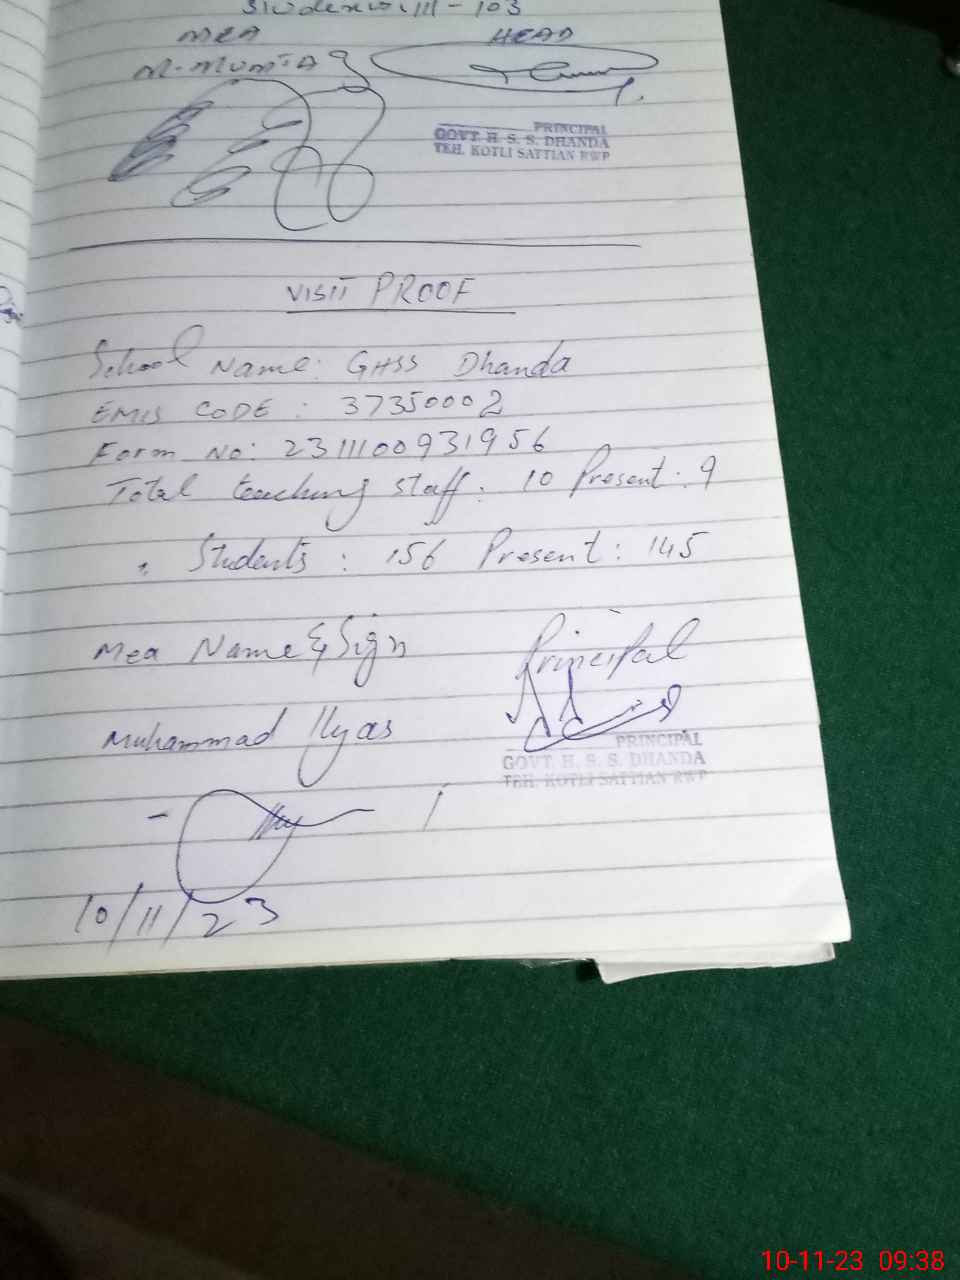 MEA HEAD
M-MUMTAZ
PRINCIPAL
GOVT. H. S. S. DHANDA
TEH. KOTLI SATTIAN RWP
VISIT PROOF
School Name: GHSS Dhanda
EMIS CODE : 37350002
Form No: 2311100931956
Total teaching staff: 10 Present: 9
" Students : 156 Present: 145
Mea Name & Sign Principal
Muhammad Ilyas
PRINCIPAL
GOVT. H. S. S. DHANDA
TEH. KOTLI SATTIAN RWP
10/11/23
10-11-23 09:38